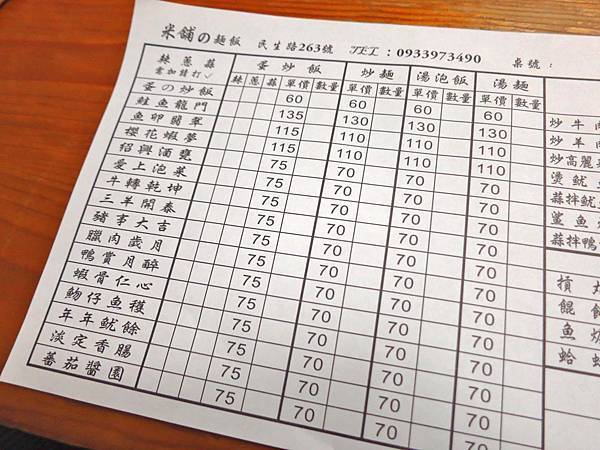 米舖の麵飯 民生路263號 TEL：0933973490 桌號：
辣蔥蒜 蛋炒飯 炒麵 湯泡飯 湯麵
需加請打✓ 辣 蔥 蒜 單價 數量 單價 數量 單價 數量 單價 數量
蛋の炒飯 60 60 60 60
鮭魚龍門 135 130 130 130
魚卵翡翠 115 110 110 110
櫻花蝦夢 115 110 110 110
紹興酒甕 75 70 70 70
愛上泡菜 75 70 70 70
牛轉乾坤 75 70 70 70
三羊開泰 75 70 70 70
豬事大吉 75 70 70 70
臘肉歲月 75 70 70 70
鴨賞月醉 75 70 70 70
蝦骨仁心 75 70 70 70
魩仔魚穫 75 70 70 70
年年魷餘 75 70 70 70
淡定香腸 75 70 70 70
蕃茄醬園 75 70 70 70
炒牛
炒羊
炒高麗
燙魷
蒜拌魷
鯊魚
蒜拌鴨
摃
餛
魚
蛤